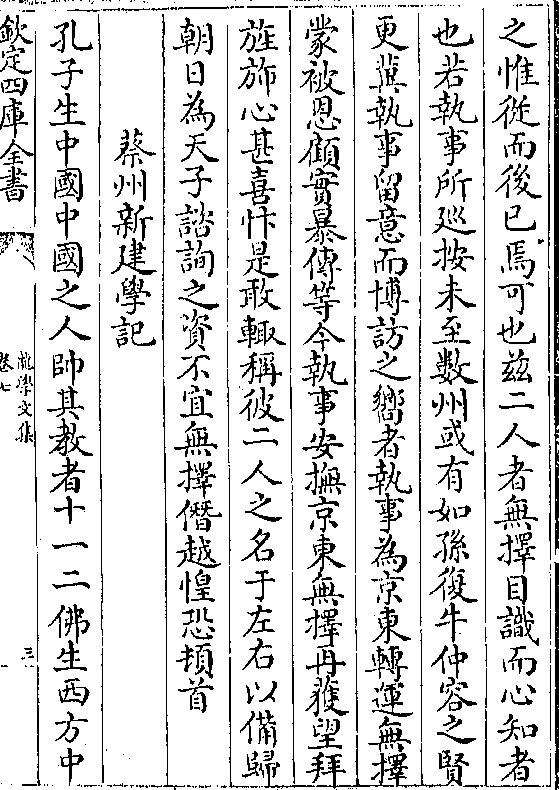 之惟従而後已焉可也兹二人者無擇目識而心知者
也若執事所廵按未至數州或有如孫復牛仲容之賢
更冀執事留意而博訪之嚮者執事為京東轉運無擇
蒙被恩顧實暴傳等今執事安撫京東無擇再獲望拜
旌斾心甚喜忭是敢輙稱彼二人之名于左右以備歸
朝日為天子諮詢之資不宜無擇僭越惶恐頓首
蔡州新建學記
孔子生中國中國之人帥其教者十一二佛生西方中
欽定四庫全書
龍學文集
卷七
三